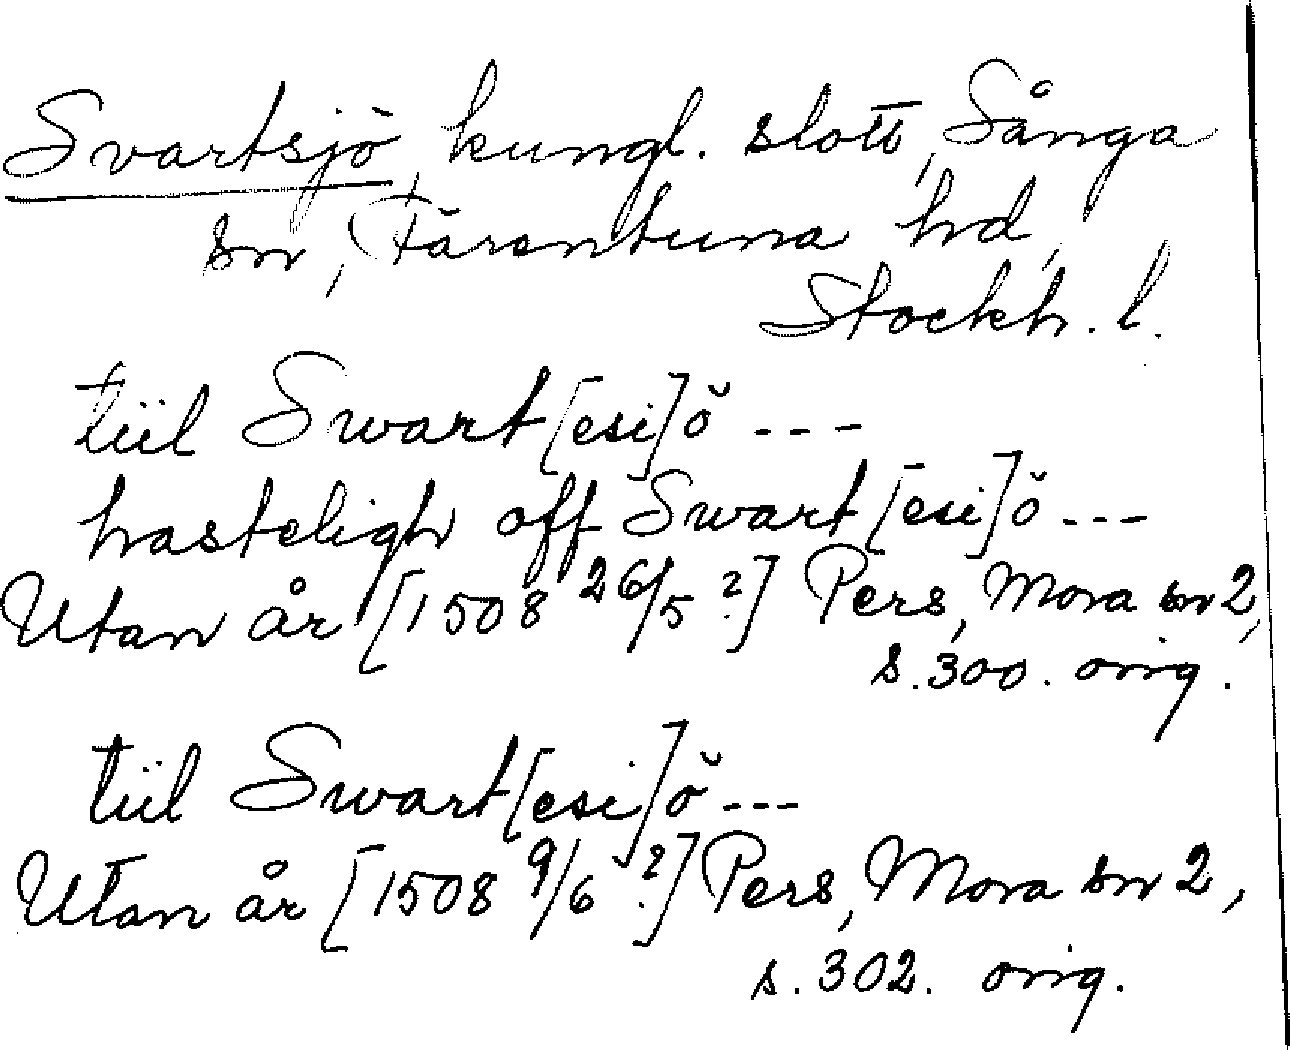 Svartsjö, kungl. slott, Sånga
sn, Färentuna hd,
Stockh. l.
tiil Swart[esi]ö ---
hasteligh off Swart[esi]ö ---
Utan år [1508 26/5 ?] Pers, Mora sn 2,
s. 300. orig.
tiil Swart[esi]ö ---
Utan år [1508 9/6 ?] Pers, Mora sn 2,
s. 302. orig.